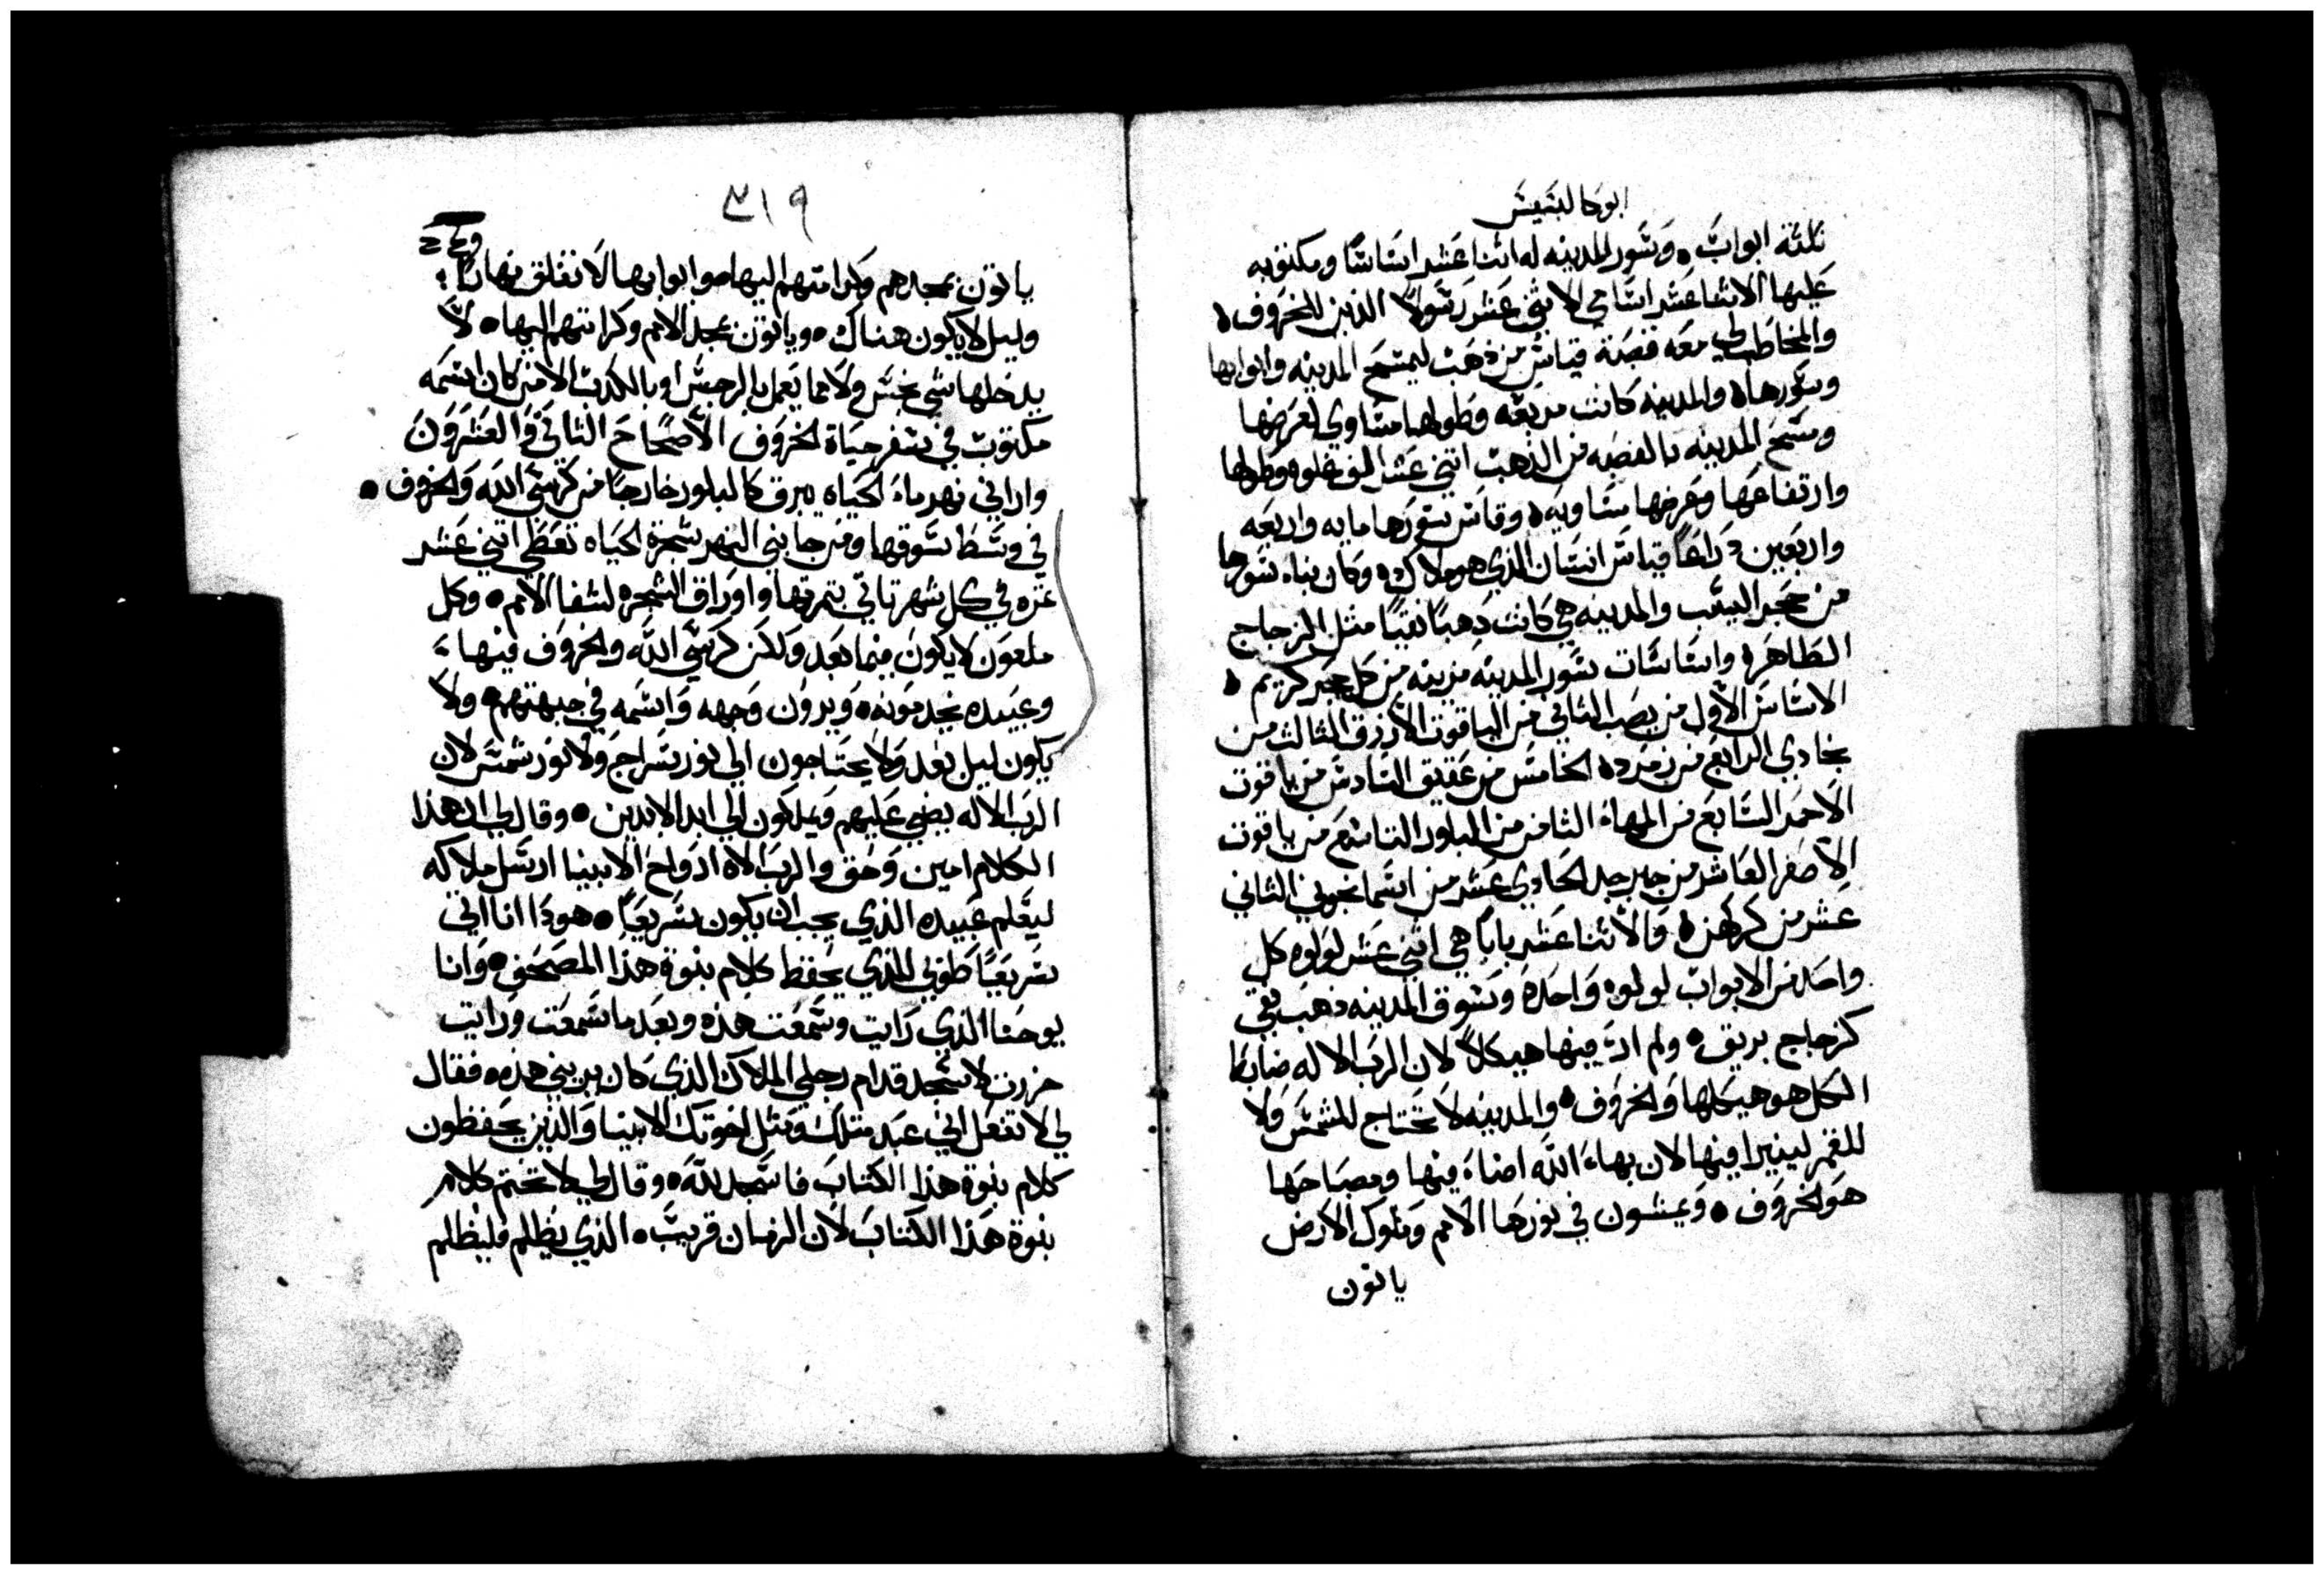 ابوكالبسيس
ثلثة ابواب ۵ وسور المدينه له اثنا عشر اساسا ومكتوبه
عليها الاثنا عشر اسامي الاثني عشر رسولا الذين للخروف ۵
والمخاطب لي معه قصبة قياس من ذهب ليمسح المدينه وابوابها
وسورها ۵ والمدينه كانت مربعه وطولها مساوي لعرضها
ومسح المدينه بالقصبه من الذهب اثني عشر الف غلوه وطولها
وارتفاعها وعرضها مساويه ۵ وقاس سورها مايه واربعه
واربعين دراعا قياس انسان الذي هو ملاك ۵ وكان بناء سورها
من حجر اليشب والمدينه هي كانت دهبا نقيا مثل الزجاج
الطاهر ۵ واساسات سور المدينه مزينه من كل حجر كريم ۵
الاساس الاول من يصب الثاني من الياقوت الازرق الثالث من
بجادي الرابع من زمرده الخامس من عقيق السادس من ياقوت
الاحمر السابع من المهاء الثامن من البلور التاسع من ياقوت
الاصفر العاشر من جبرجد الحادي عشر من اسمانجوني الثاني
عشر من كركهن ۵ والاثنا عشر بابا هي اثني عشر لولوه كل
واحد من الابواب لولوه واحده وسوق المدينه ذهب نقي
كزجاج بريق ۵ ولم ار فيها هيكلا لان الرب الاله ضابط
الكل هو هيكلها والخروف ۵ والمدينه لا تحتاج للشمس ولا
للقمر لينيرا فيها لان بهاء الله اضاء فيها ومصباحها
هو الخروف ۵ ويمشون في نورها الامم وملوك الارض
ياتون
٣١٩
ياتون بمجدهم وكرامتهم اليها ۵ وابوابها لا تغلق نهارا
وليل لا يكون هناك ۵ وياتون بمجد الامم وكرامتهم اليها ۵ لا
يدخلها شي نجس ولا مما يعمل بالرجس او بالكدب الا من كان اسمه
مكتوب في سفر حياة الخروف الاصحاح الثاني والعشرون
واراني نهر ماء الحياه يبرق كالبلور خارجا من كرسي الله والخروف ۵
في وسط سوقها ومن جانبي النهر شجرة الحياه تعطي اثني عشر
ثمره في كل شهر تاتي بثمرتها واوراق الشجره لشفا الامم ۵ وكل
ملعون لا يكون فيما بعد ولكن كرسي الله والخروف فيها
وعبيده يخدمونه ۵ ويرون وجهه واسمه في جبهتهم ۵ ولا
يكون ليل بعد ولا يحتاجون الي نور سراج ولا نور شمس لان
الرب الاله يضي عليهم ويملكون الي ابد الابدين ۵ وقال لي ان هذا
الكلام امين وحق والرب الاه ارواح الانبيا ارسل ملاكه
ليعلم عبيده الذي يجب ان يكون سريعا ۵ هودا انا اتي
سريعا طوبي للذي يحفظ كلام بنوة هذا المصحف ۵ وانا
يوحنا الذي رايت وسمعت هذه وبعد ما سمعت ورايت
خررت لاسجد قدام رجلي الملاك الذي كان يريني هذه ۵ فقال
لي لا تفعل اني عبد مثلك ومثل اخوتك الانبيا والذين يحفظون
كلام بنوة هذا الكتاب فاسجد لله ۵ وقال لي لا تختم كلام
بنوة هذا الكتاب لان الزمان قريب ۵ الذي يظلم فليظلم